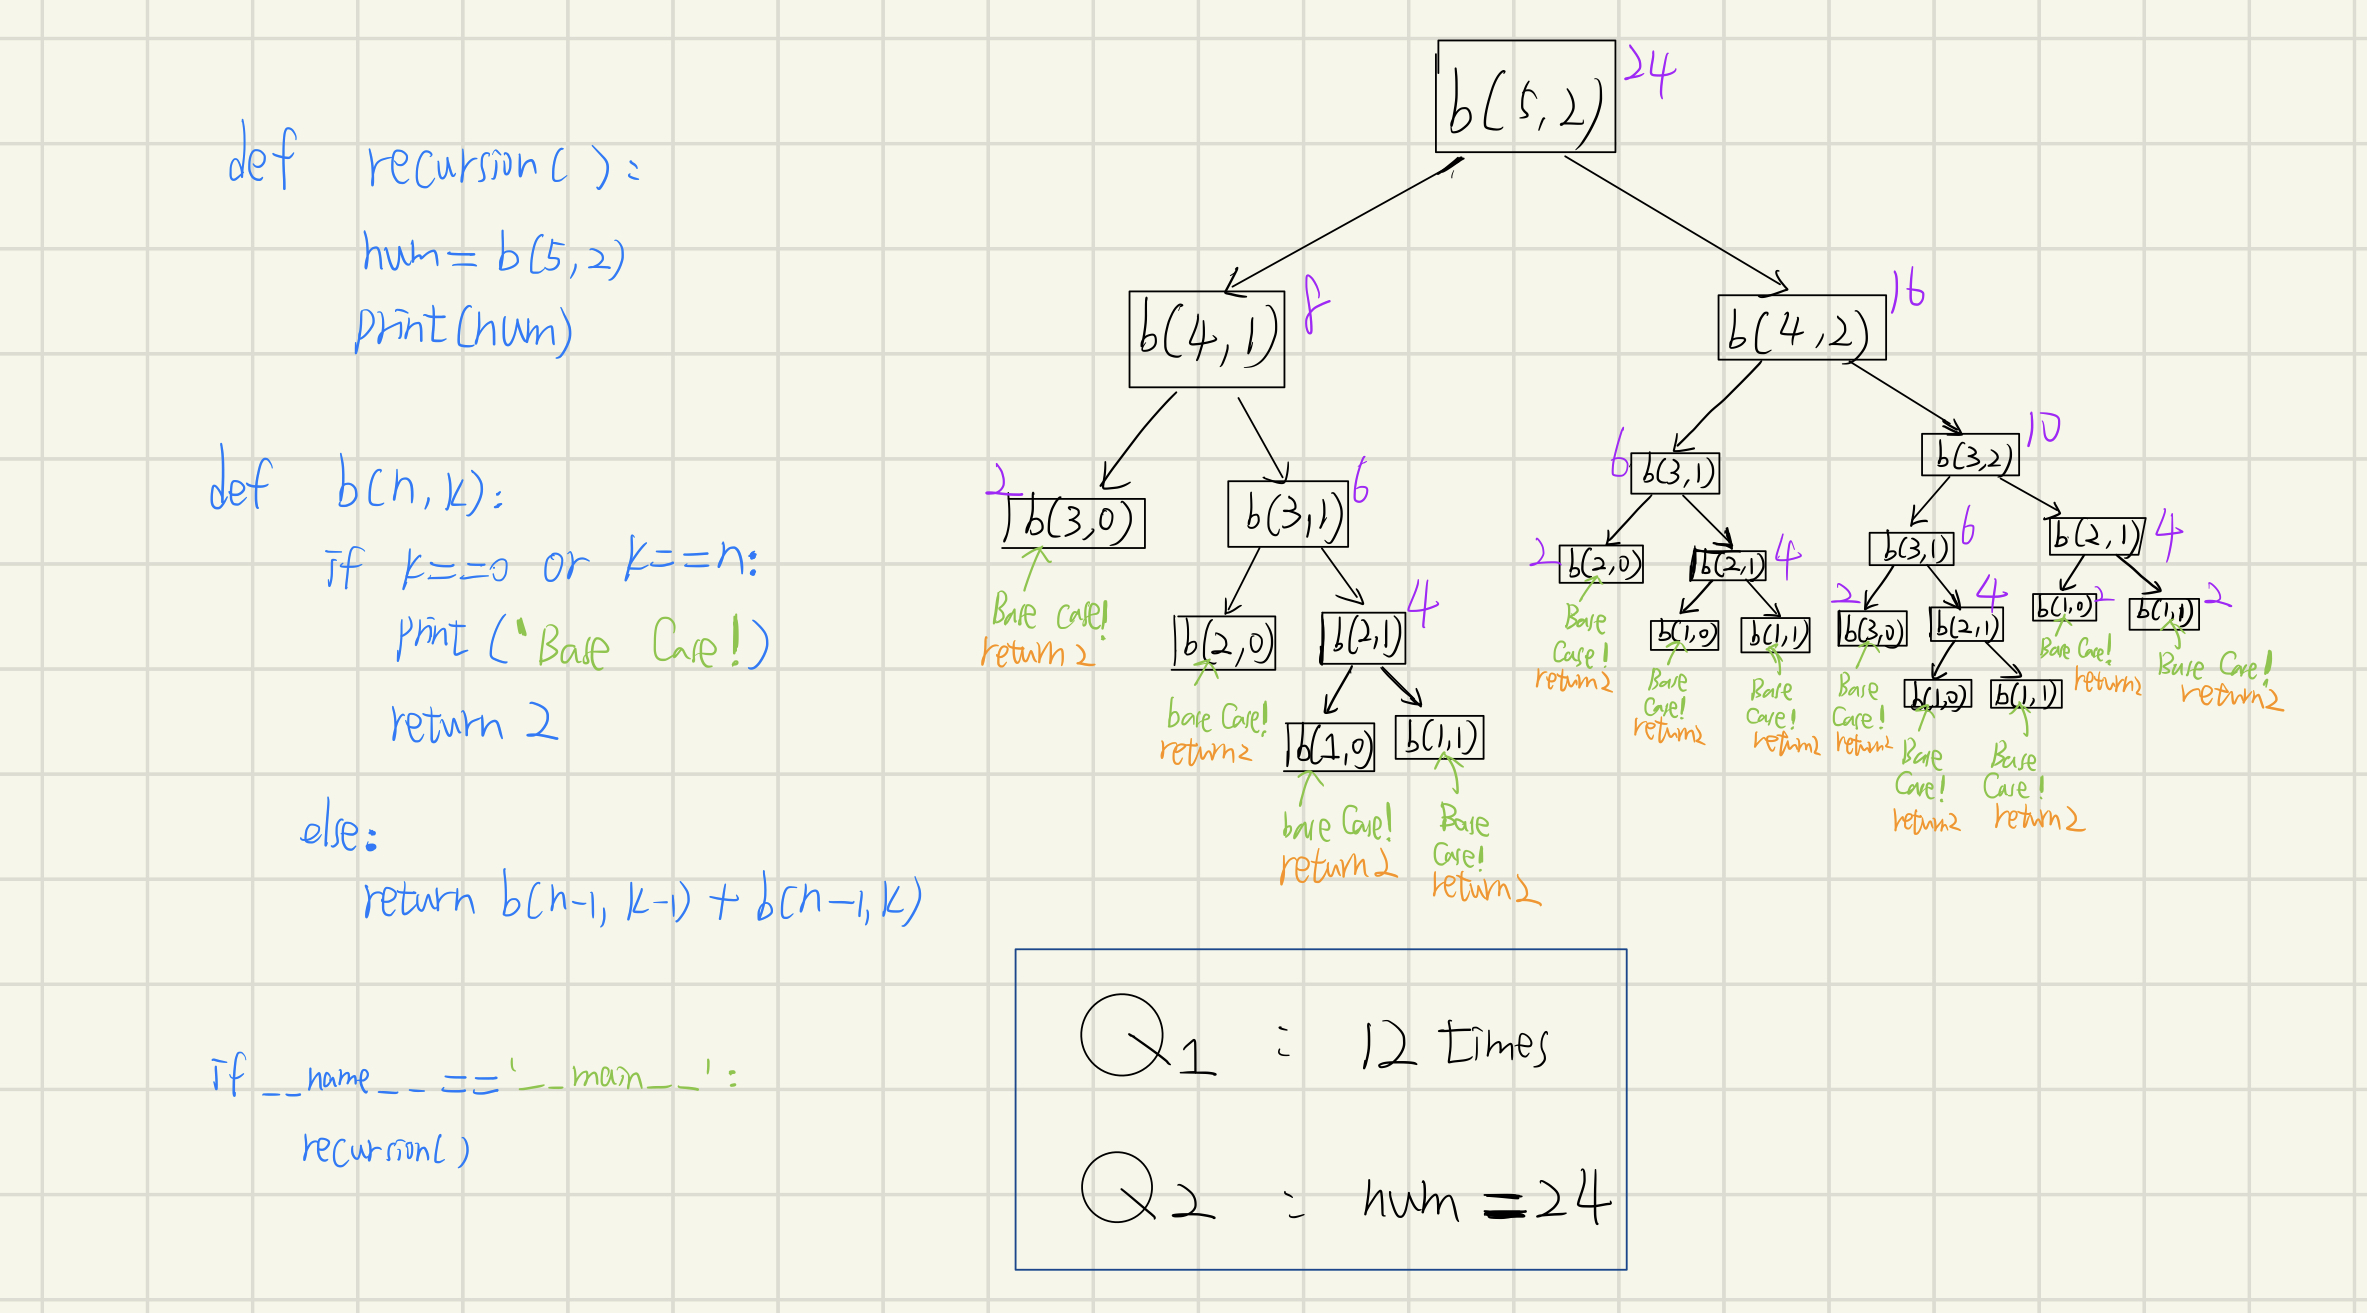 def recursion():
num = b(5,2)
print(num)
def b(n,k):
if k==0 or k==n:
print('Base Case!)
return 2
else:
return b(n-1, k-1) + b(n-1,k)
if __name__ == '__main__':
recursion()
b(5,2) 24
b(4,1) 8
b(4,2) 16
2 b(3,0)
Base Case!
return 2
b(3,1) 6
b(2,0)
base Case!
return 2
b(2,1) 4
b(1,0)
base Case!
return 2
b(1,1)
Base
Case!
return 2
6 b(3,1)
2 b(2,0)
Base
Case!
return 2
b(2,1) 4
b(1,0)
Base
Case!
return 2
b(1,1)
Base
Case!
return 2
b(3,2) 10
b(3,1) 6
2 b(3,0)
Base
Case!
return 2
b(2,1) 4
b(1,0)
Base
Case!
return 2
b(1,1)
Base
Case!
return 2
b(2,1) 4
b(1,0) 2
Base Case!
return 2
b(1,1) 2
Base Case!
return 2
Q1 : 12 times
Q2 : num = 24